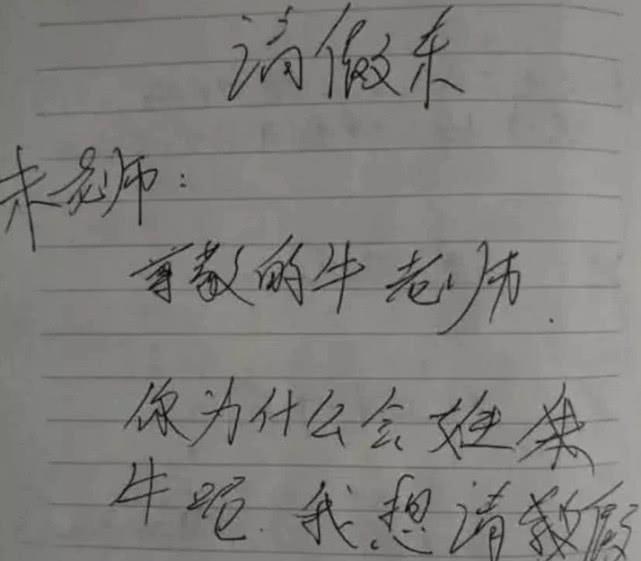 请做条
朱老师:
尊敬的牛老师.
你为什么会姓
牛呢.我想请教假